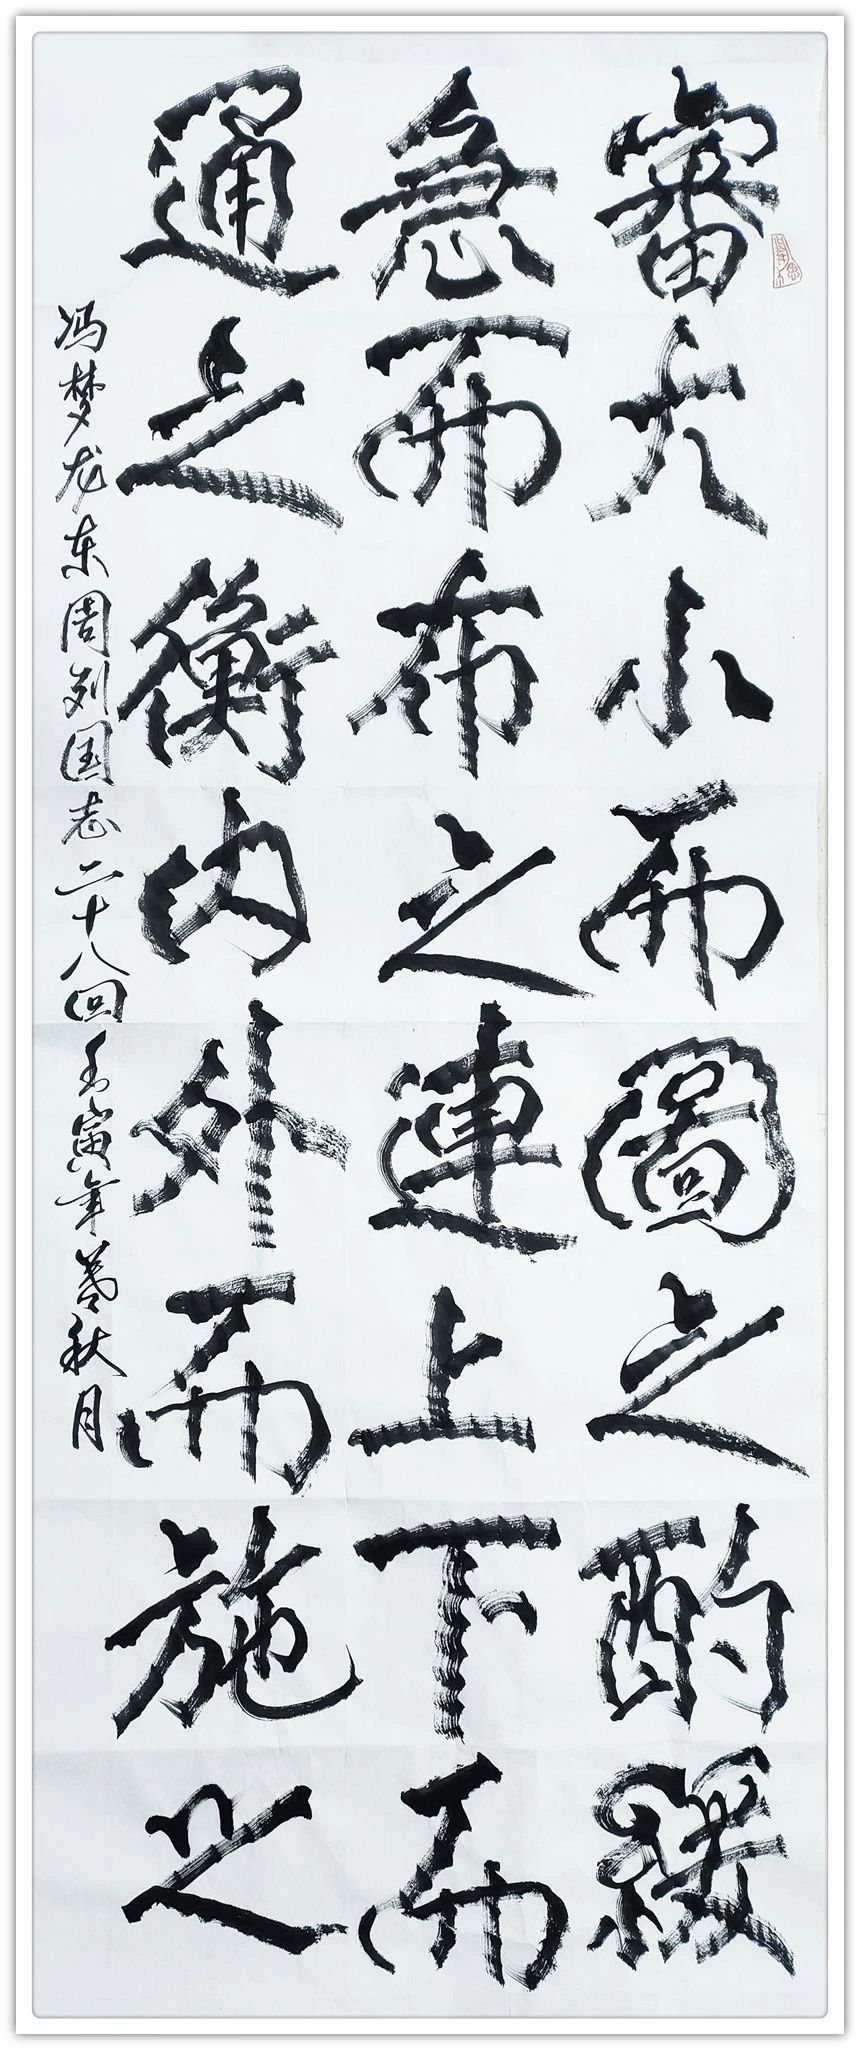 審大小而圖之酌緩
急而布之連上下而
通之衡内外而施之
冯梦龙东周列国志二十八回壬寅年暮秋月